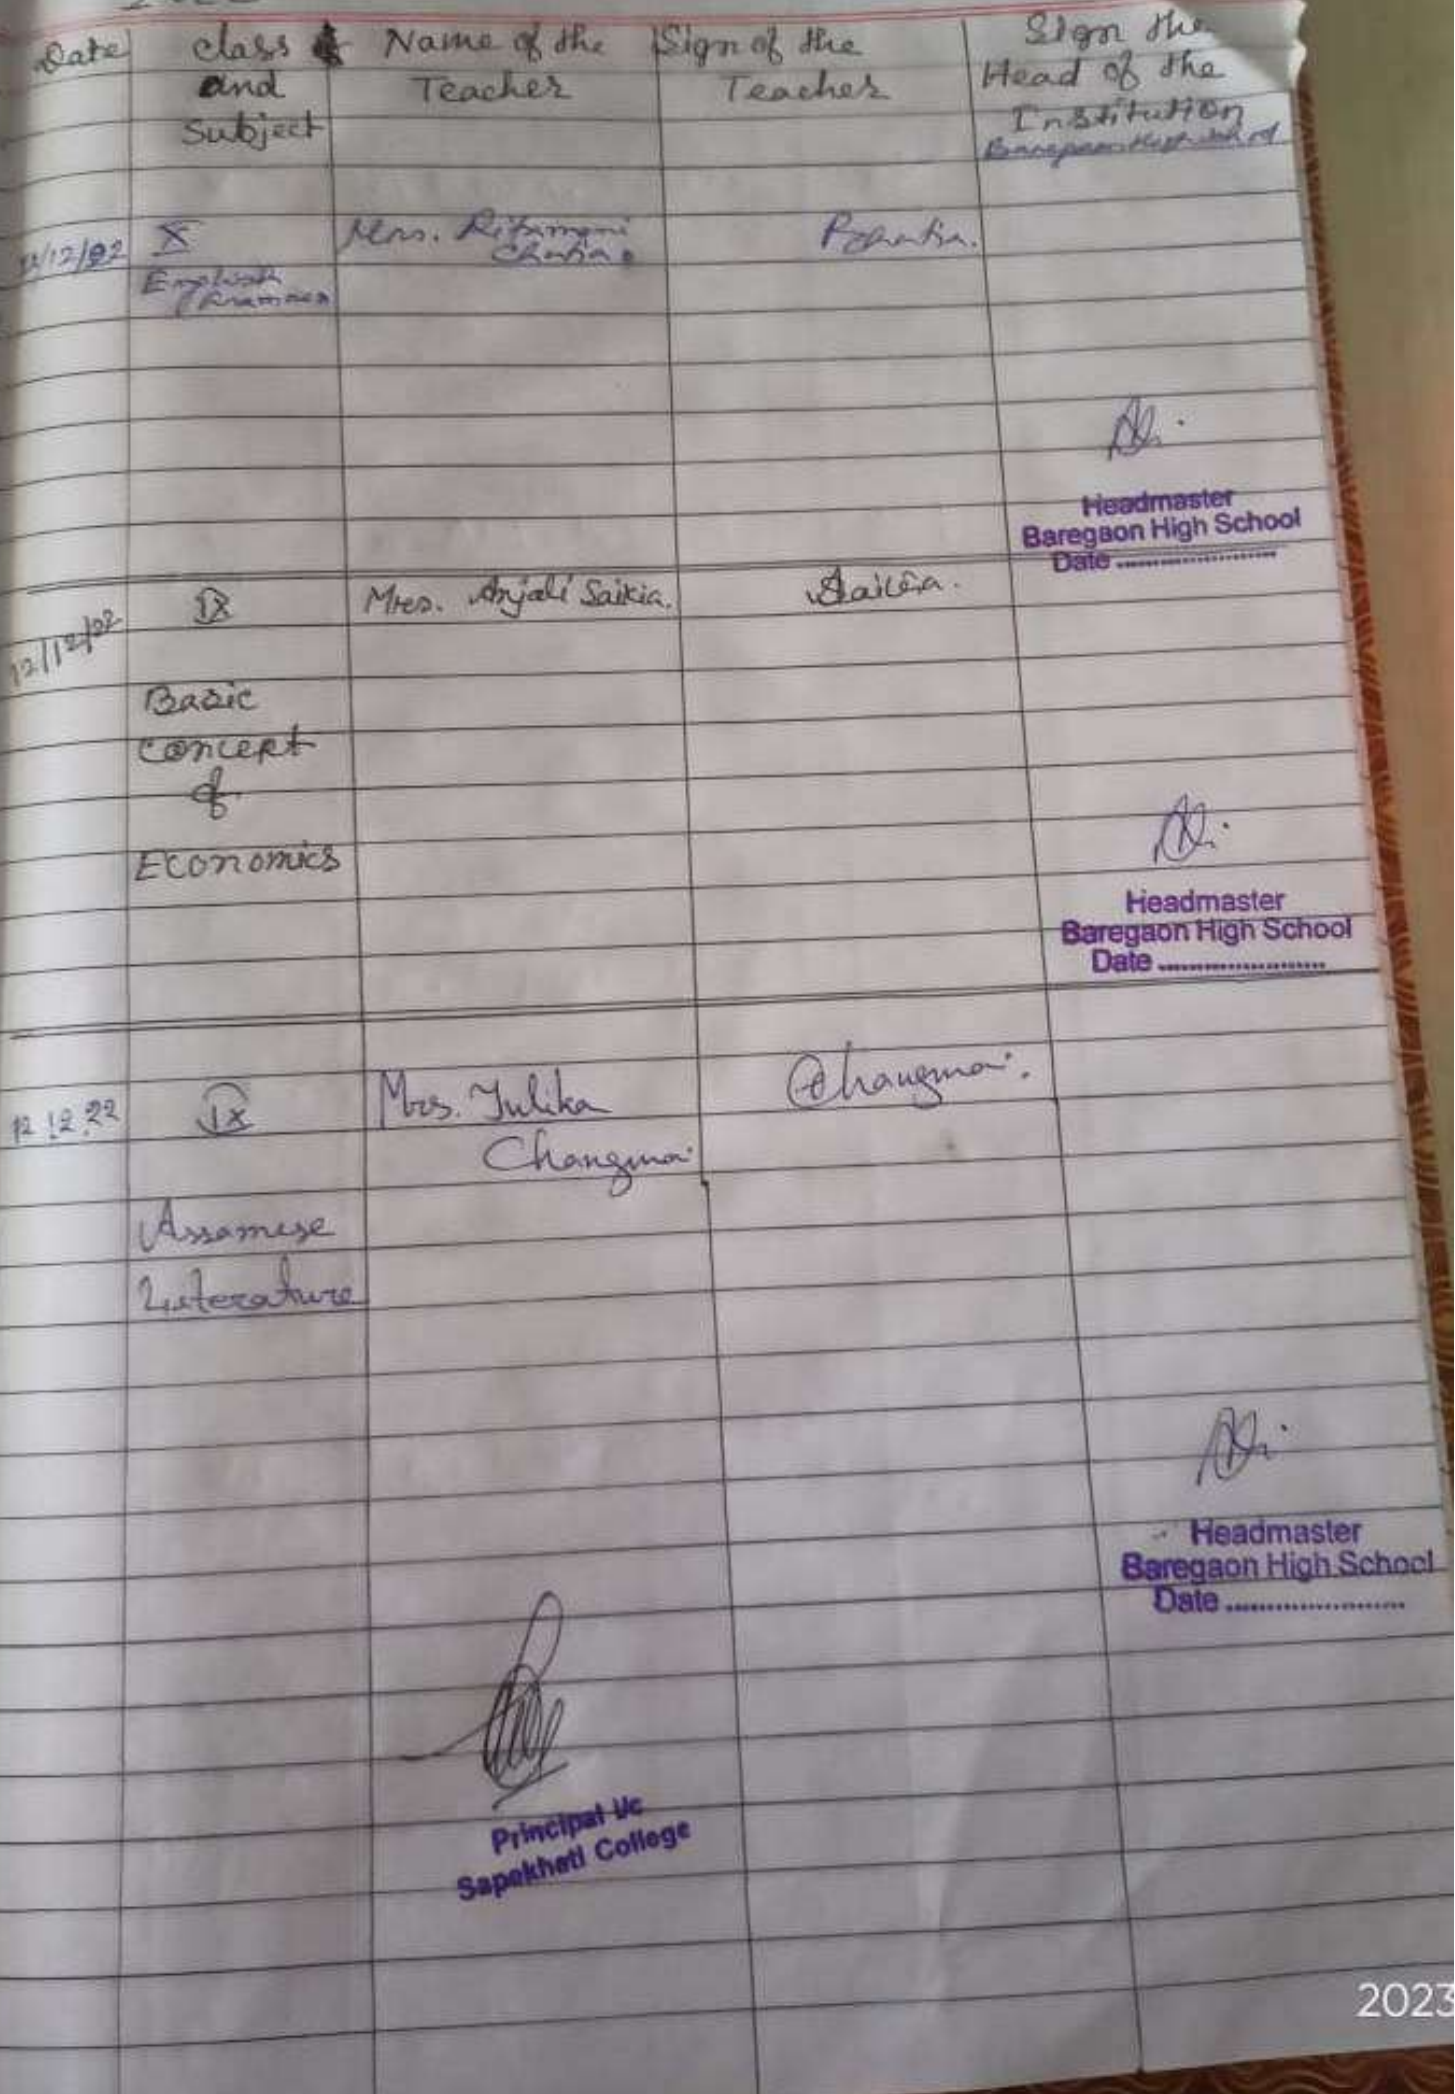 Date
class
and
Subject
Name of the
Teacher
Sign of the
Teacher
Sign the
Head of the
Institution
/12/22
X
English
Grammar
Mrs. Ritimoni
Chutia.
Headmaster
Baregaon High School
Date ........................
12/12/22
IX
Basic
concept
of
Economics
Mrs. Anjali Saikia.
Saikia.
Headmaster
Baregaon High School
Date ........................
12.12.22
IX
Assamese
Literature
Mrs. Julika
Changmai
Changmai.
Headmaster
Baregaon High School
Date ........................
Principal I/c
Sapekhati College
2023